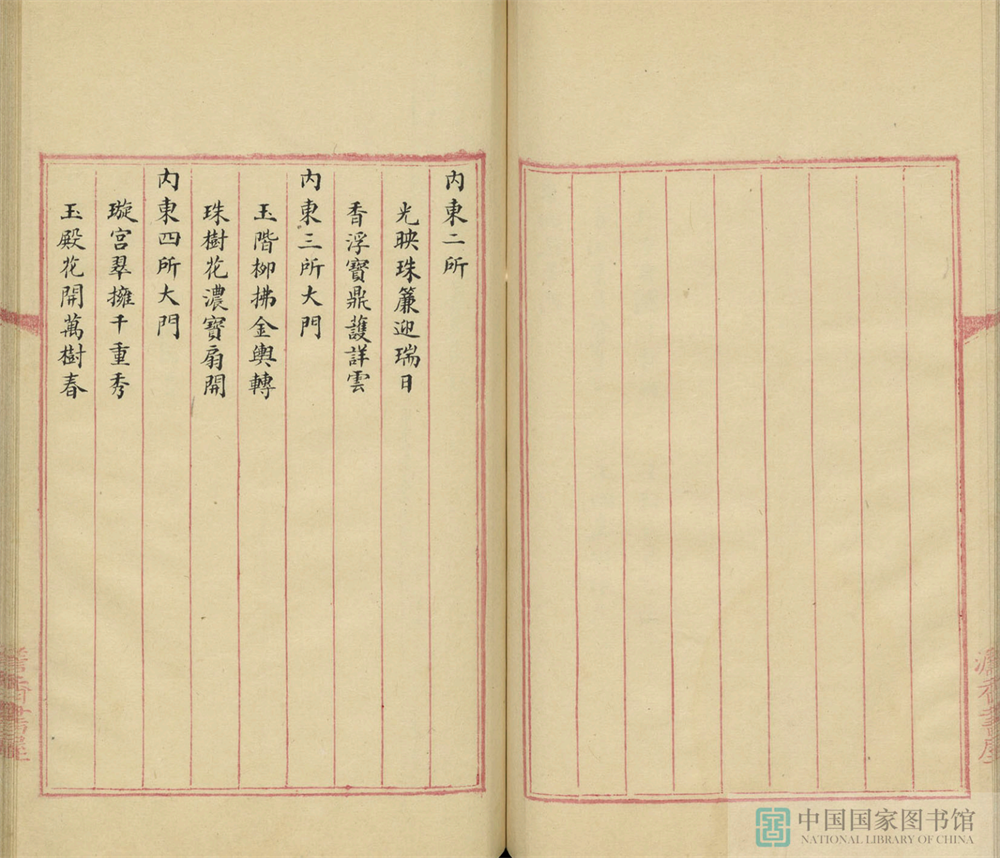 內東二所
光映珠簾迎瑞日
香浮寶鼎護詳雲
內東三所大門
玉階柳拂金輿轉
珠樹花濃寶扇開
內東四所大門
璇宮翠擁千重秀
玉殿花開萬樹春
中国国家图书馆
NATIONAL LIBRARY OF CHINA